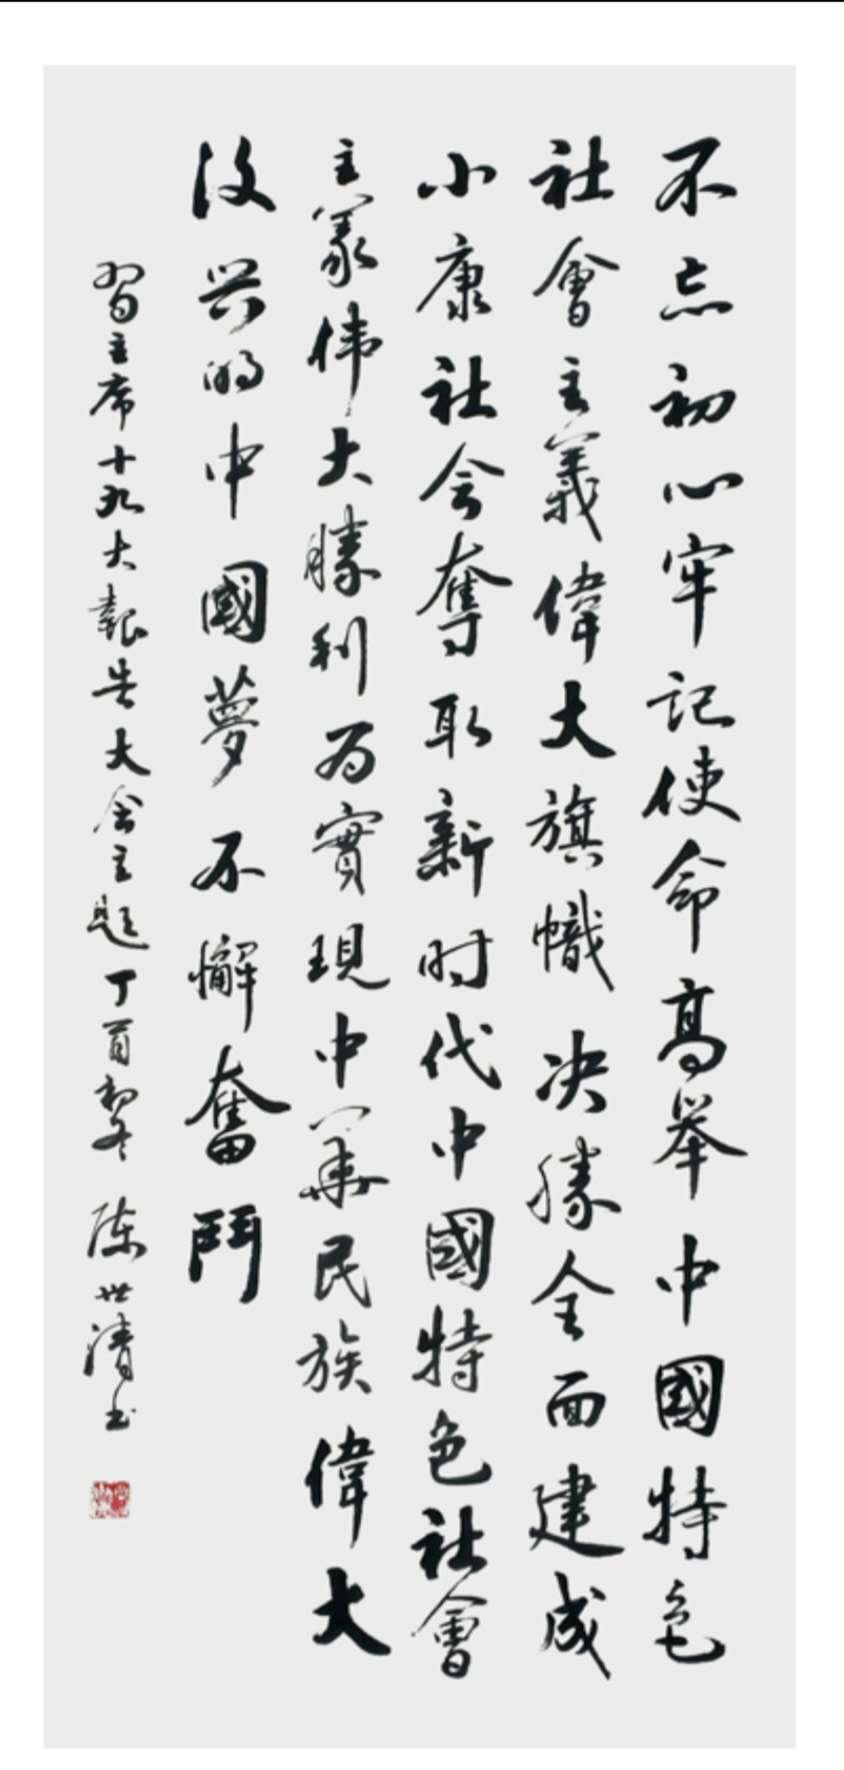 不忘初心牢记使命高举中國特色
社會主義偉大旗幟决勝全面建成
小康社会奪取新时代中國特色社會
主義伟大勝利为實現中华民族偉大
復兴的中國夢不懈奮鬥
習主席十九大報告大会主题丁酉初冬 陈世清书